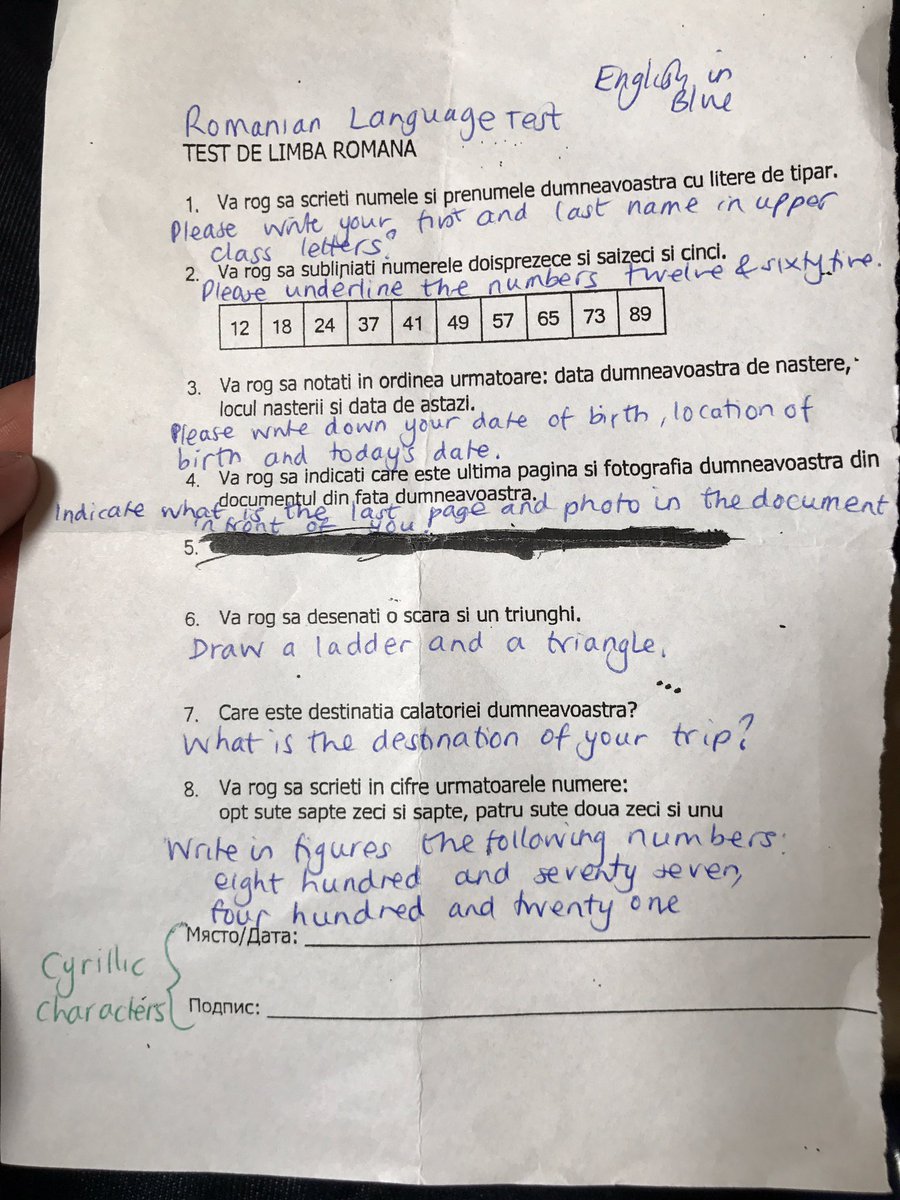 English in
Blue
Romanian Language Test
TEST DE LIMBA ROMANA
1. Va rog sa scrieti numele si prenumele dumneavoastra cu litere de tipar.
Please write your first and last name in upper
class letters?
2. Va rog sa subliniati numerele doisprezece si saizeci si cinci.
Please underline the numbers twelve & sixty five.
12 18 24 37 41 49 57 65 73 89
3. Va rog sa notati in ordinea urmatoare: data dumneavoastra de nastere,
locul nasterii si data de astazi.
Please write down your date of birth, location of
birth and today's date.
4. Va rog sa indicati care este ultima pagina si fotografia dumneavoastra din
documentul din fata dumneavoastra.
Indicate what is the last page and photo in the document
in front of you.
5.
6. Va rog sa desenati o scara si un triunghi.
Draw a ladder and a triangle.
7. Care este destinatia calatoriei dumneavoastra?
What is the destination of your trip?
8. Va rog sa scrieti in cifre urmatoarele numere:
opt sute sapte zeci si sapte, patru sute doua zeci si unu
Write in figures the following numbers:
eight hundred and seventy seven,
four hundred and twenty one
Място/Дата:
Cyrillic
characters
Подпис: